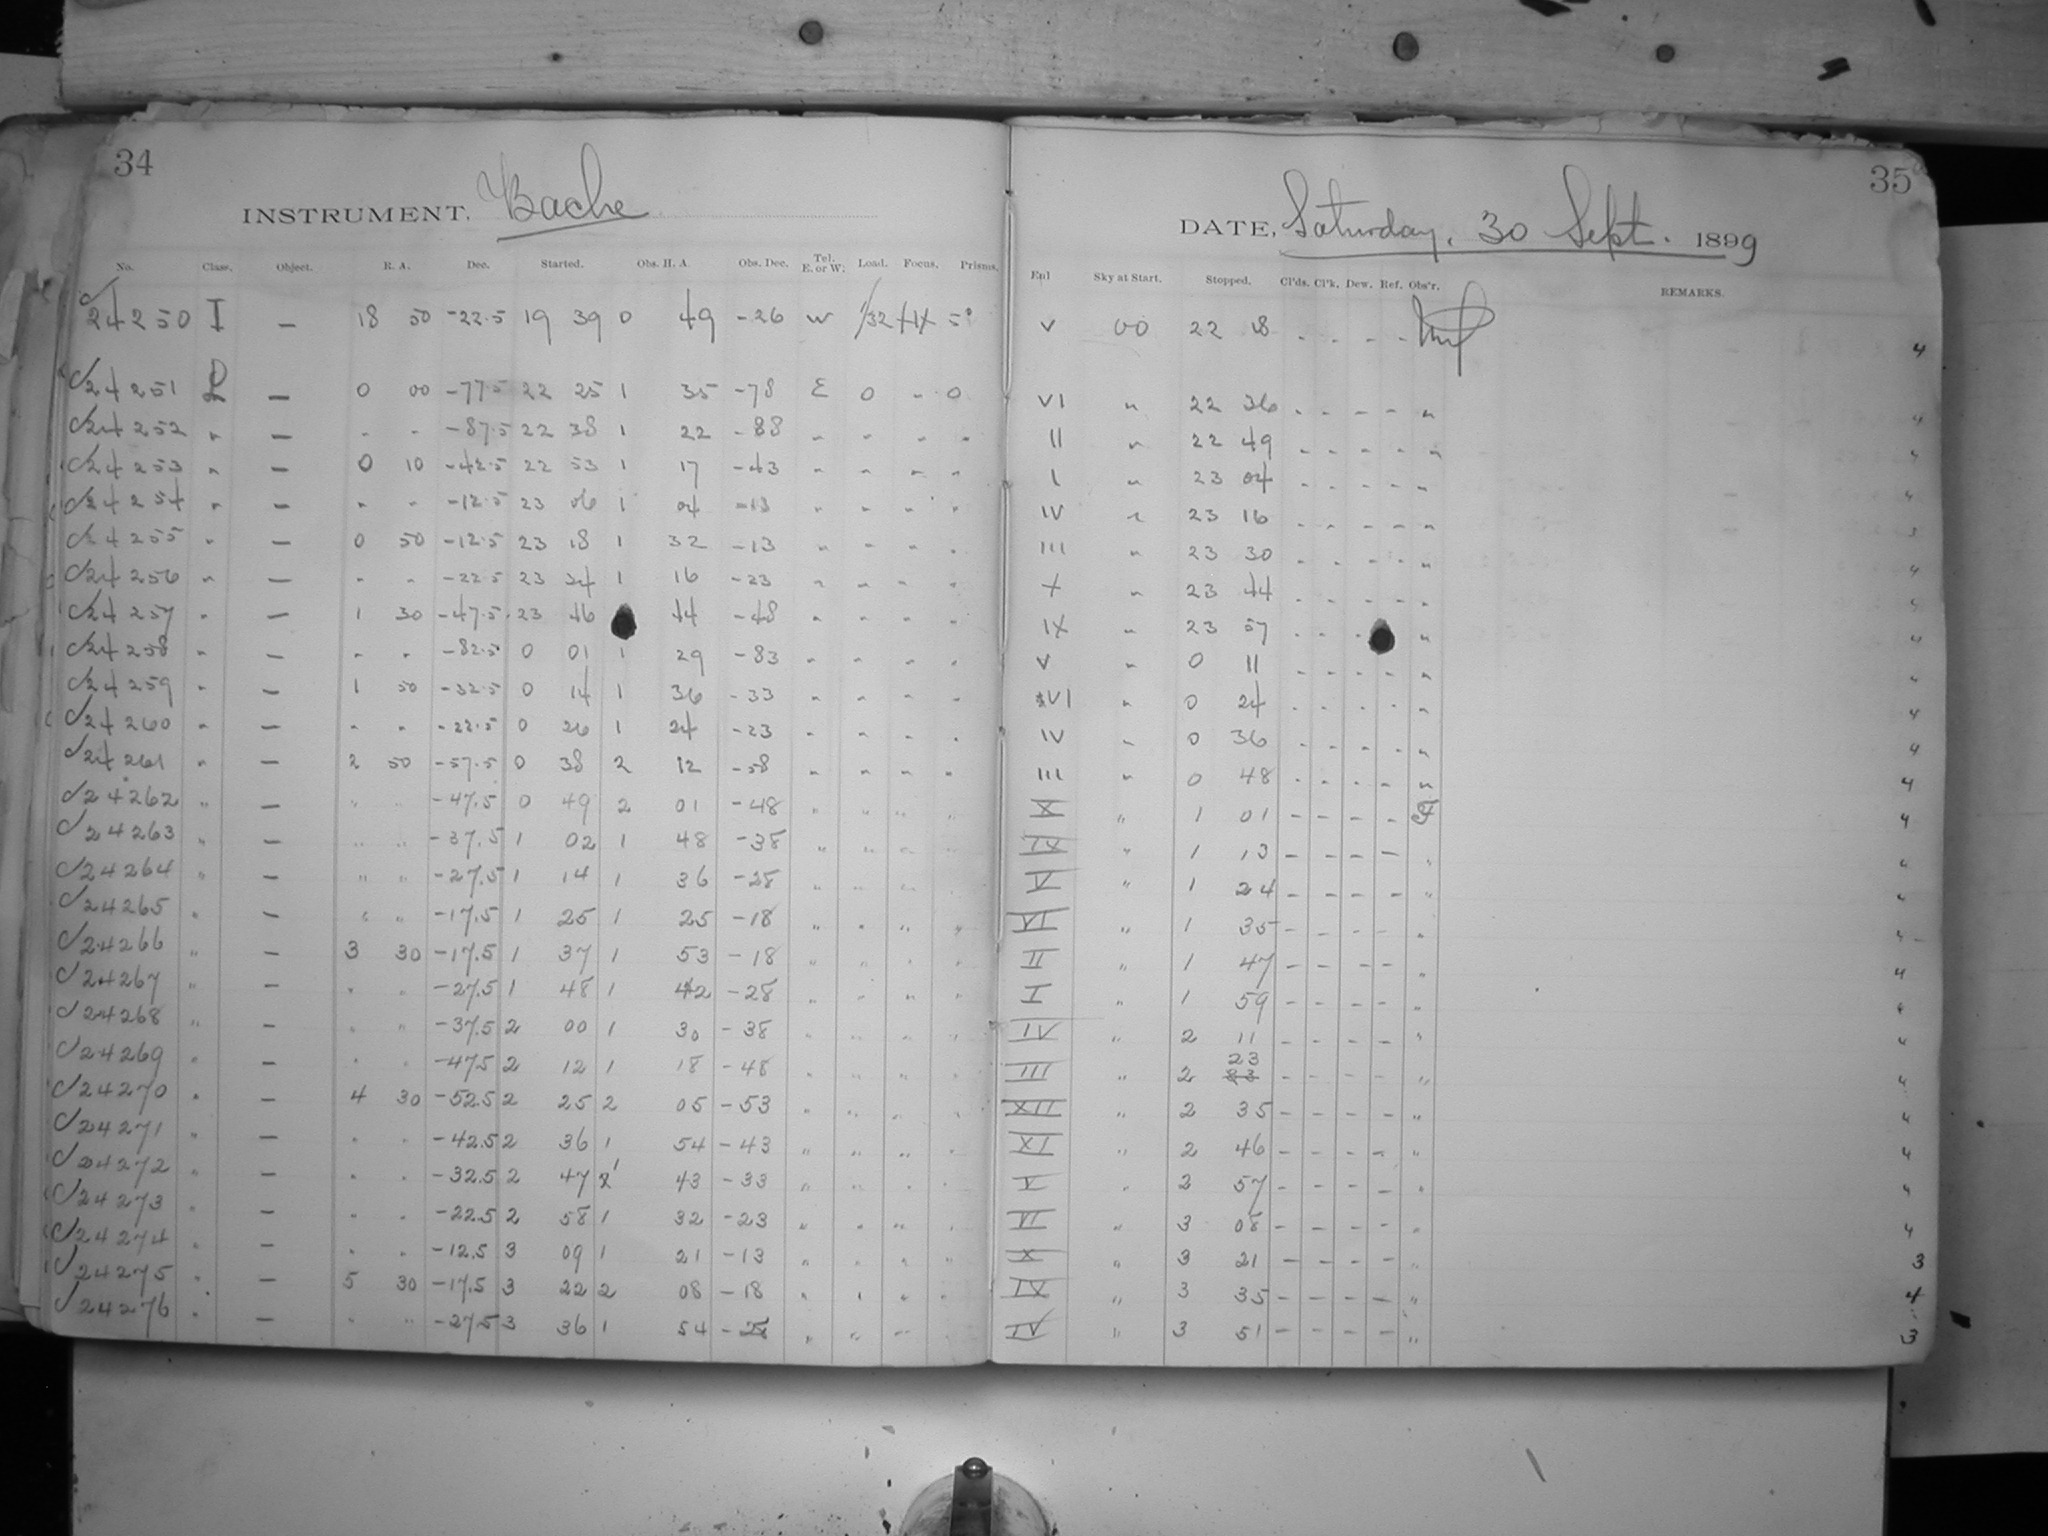 34
INSTRUMENT, Bache
No. Class. Object. R. A. Dec. Started. Obs. H. A. Obs. Dec. Tel. E. or W. Load. Focus. Prisms.
24250 I — 18 50 -22.5 19 39 0 49 -26 W
24251 — 0 00 -77.5 22 25 1 35 -78 E 0 " 0
24252 " — " " -87.5 22 38 1 22 -88 " " " "
24253 " — 0 10 -42.5 22 53 1 17 -43 " " " "
24254 " — " " -12.5 23 06 1 04 -13 " " " "
24255 " — 0 50 -12.5 23 18 1 32 -13 " " " "
24256 " — " " -22.5 23 34 1 16 -23 " " " "
24257 " — 1 30 -47.5 23 46 44 -48 " " " "
24258 " — " " -82.5 0 01 1 29 -83 " " " "
24259 " — 1 50 -32.5 0 14 1 36 -33 " " " "
24260 " — " " -22.5 0 26 1 24 -23 " " " "
24261 " — 2 50 -57.5 0 38 2 12 -58 " " " "
24262 " — " " -47.5 0 49 2 01 -48 " " " "
24263 " — " " -37.5 1 02 1 48 -38 " " " "
24264 " — " " -27.5 1 14 1 36 -28 " " " "
24265 " — " " -17.5 1 25 1 25 -18 " " " "
24266 " — 3 30 -17.5 1 37 1 53 -18 " " " "
24267 " — " " -27.5 1 48 1 42 -28 " " " "
24268 " — " " -37.5 2 00 1 30 -38 " " " "
24269 " — " " -47.5 2 12 1 18 -48 " " " "
24270 " — 4 30 -52.5 2 25 2 05 -53 " " " "
24271 " — " " -42.5 2 36 1 54 -43 " " " "
24272 " — " " -32.5 2 47 1 43 -33 " " " "
24273 " — " " -22.5 2 58 1 32 -23 " " " "
24274 " — " " -12.5 3 09 1 21 -13 " " " "
24275 " — 5 30 -17.5 3 22 2 08 -18 " " " "
24276 " — " " -27.5 3 36 1 54 -28 " " " "
35
DATE, Saturday, 30 Sept. 1899
Enl Sky at Start. Stopped. Cl'ds. Cl'k. Dew. Ref. Obs'r. REMARKS.
V 00 22 18 - - - - 4
VI " 22 36 - - - - " 4
II " 22 49 - - - - "
I " 23 04 - - - - " 4
IV " 23 16 - - - - "
III " 23 30 - - - - " 4
X " 23 44 - - - - "
IX " 23 57 - - - " 4
V " 0 11 - - - - " 4
VI " 0 24 - - - - " 4
IV " 0 36 - - - - " 4
III " 0 48 - - - - " 4
X " 1 01 - - - - 4
IX " 1 13 - - - - "
V " 1 24 - - - - "
VI " 1 35 - - - - "
II " 1 47 - - - - " 4
I " 1 59 - - - - "
IV " 2 11 - - - - " 4
III " 2 23 - - - - " 4
XII " 2 35 - - - - " 4
XI " 2 46 - - - - " 4
V " 2 57 - - - - " 4
VI " 3 08 - - - - " 4
X " 3 21 - - - - " 3
IX " 3 35 - - - - " 4
IV " 3 51 - - - - " 3